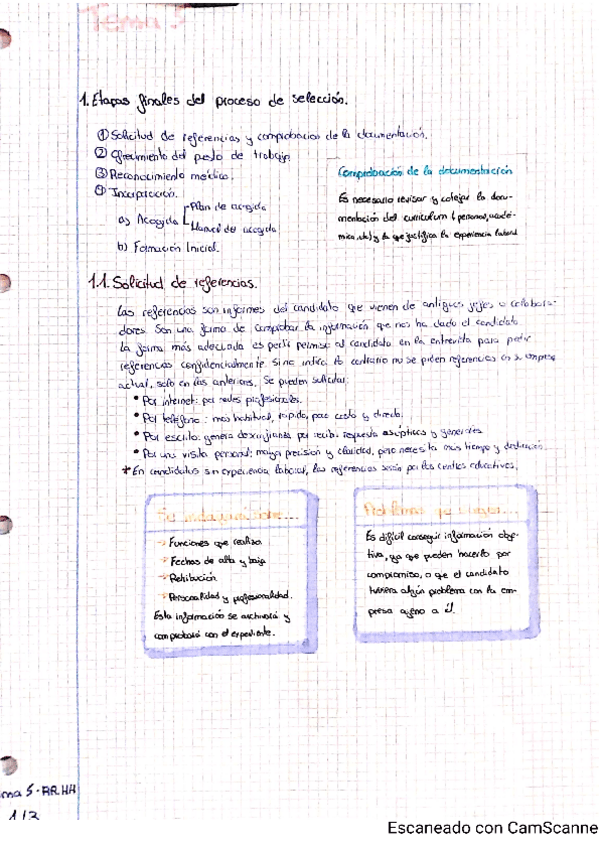 Tema 5
1. Etapas finales del proceso de selección.
① Solicitud de referencias y comprobación de la documentación.
② Ofrecimiento del puesto de trabajo.
③ Reconocimiento médico.
④ Incorporación.
a) Acogida
Plan de acogida
Manual de acogida
b) Formación Inicial.
Comprobación de la documentación
Es necesario revisar y cotejar la docu-
mentación del curriculum (personal, acadé-
mica, etc) y la que justifica la experiencia laboral
1.1. Solicitud de referencias.
Las referencias son informes del candidato que vienen de antiguos jefes o colabora-
dores. Son una forma de comprobar la información que nos ha dado el candidato.
La forma más adecuada es pedir permiso al candidato en la entrevista para pedir
referencias confidencialmente. Si no indica lo contrario no se piden referencias en su empresa
actual, solo en las anteriores. Se pueden solicitar:
• Por internet: por redes profesionales.
• Por teléfono: más habitual, rápido, poco costo y directo.
• Por escrito: genera por recibir respuesta asépticas y generales
• Por una visita personal: mayor precisión y claridad, pero necesita más tiempo y dedicación.
* En candidatos sin experiencia laboral, las referencias serán por los centros educativos.
Se
Funciones que realiza
Fechas de alta y baja
Retribución
Personalidad y profesionalidad.
Esta información se archivará y
comprobará con el expediente.
Problemas que
Es difícil conseguir información obje-
tiva, ya que pueden hacerlo por
compromiso, o que el candidato
tuviera algún problema con la em-
presa ajeno a él.
ma 5 - RR.HH
1/3
Escaneado con CamScanne